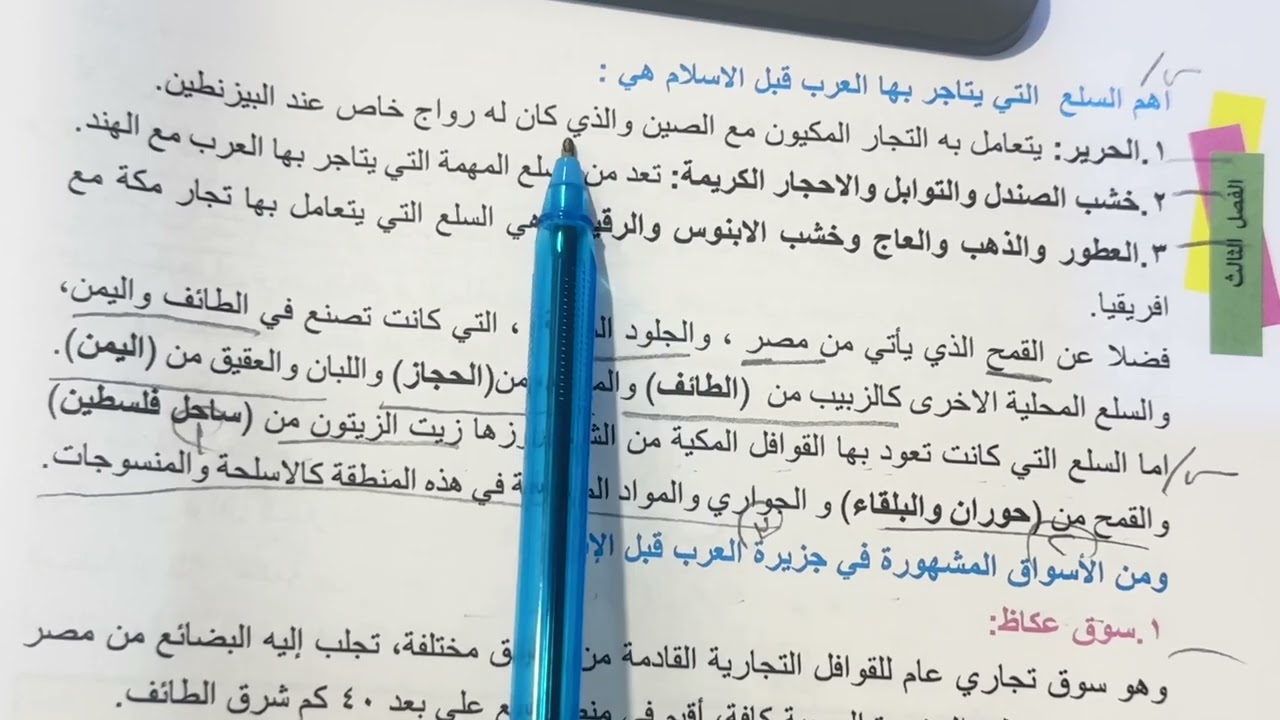 اهم السلع التي يتاجر بها العرب قبل الاسلام هي :
١.الحرير: يتعامل به التجار المكيون مع الصين والذي كان له رواج خاص عند البيزنطين.
٢.خشب الصندل والتوابل والاحجار الكريمة: تعد من المهمة التي يتاجر بها العرب مع الهند.
٣.العطور والذهب والعاج وخشب الابنوس هي السلع التي يتعامل بها تجار مكة مع
افريقيا.
فضلا عن القمح الذي يأتي من مصر ، والجلود ، التي كانت تصنع في الطائف واليمن،
والسلع المحلية الاخرى كالزبيب من (الطائف) من(الحجاز) واللبان والعقيق من (اليمن).
اما السلع التي كانت تعود بها القوافل المكية من زيت الزيتون من (ساحل فلسطين)
والقمح من (حوران والبلقاء) و الجواري والمواد في هذه المنطقة كالاسلحة والمنسوجات.
ومن الأسواق المشهورة في جزيرة العرب قبل
١.سوق عكاظ:
وهو سوق تجاري عام للقوافل التجارية القادمة من مختلفة، تجلب إليه البضائع من مصر
كافة، أقيم في على بعد ٤٠ كم شرق الطائف.
الفصل الثالث